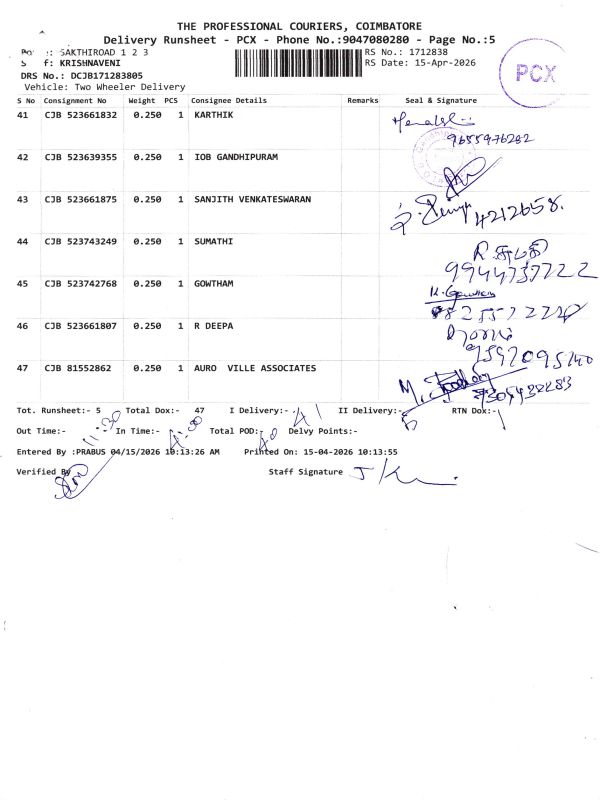 THE PROFESSIONAL COURIERS, COIMBATORE
Delivery Runsheet - PCX - Phone No.:9047080280 - Page No.:5
: SAKTHIROAD 1 2 3
RS No.: 1712838
f: KRISHNAVENI
RS Date: 15-Apr-2026
PCX
DRS No.: DCJB171283805
Vehicle: Two Wheeler Delivery
S No Consignment No Weight PCS Consignee Details Remarks Seal & Signature
41 CJB 523661832 0.250 1 KARTHIK
9655976282
42 CJB 523639355 0.250 1 IOB GANDHIPURAM
43 CJB 523661875 0.250 1 SANJITH VENKATESWARAN
4212658.
44 CJB 523743249 0.250 1 SUMATHI
9944737722
45 CJB 523742768 0.250 1 GOWTHAM
K. Gowtham
46 CJB 523661807 0.250 1 R DEEPA
47 CJB 81552862 0.250 1 AURO VILLE ASSOCIATES
Tot. Runsheet:- 5 Total Dox:- 47 I Delivery:- 41 II Delivery:- RTN Dox:-
Out Time:- 11:30 In Time:- 4:00 Total POD:- 40 Delvy Points:-
Entered By :PRABUS 04/15/2026 10:13:26 AM Printed On: 15-04-2026 10:13:55
Verified By Staff Signature